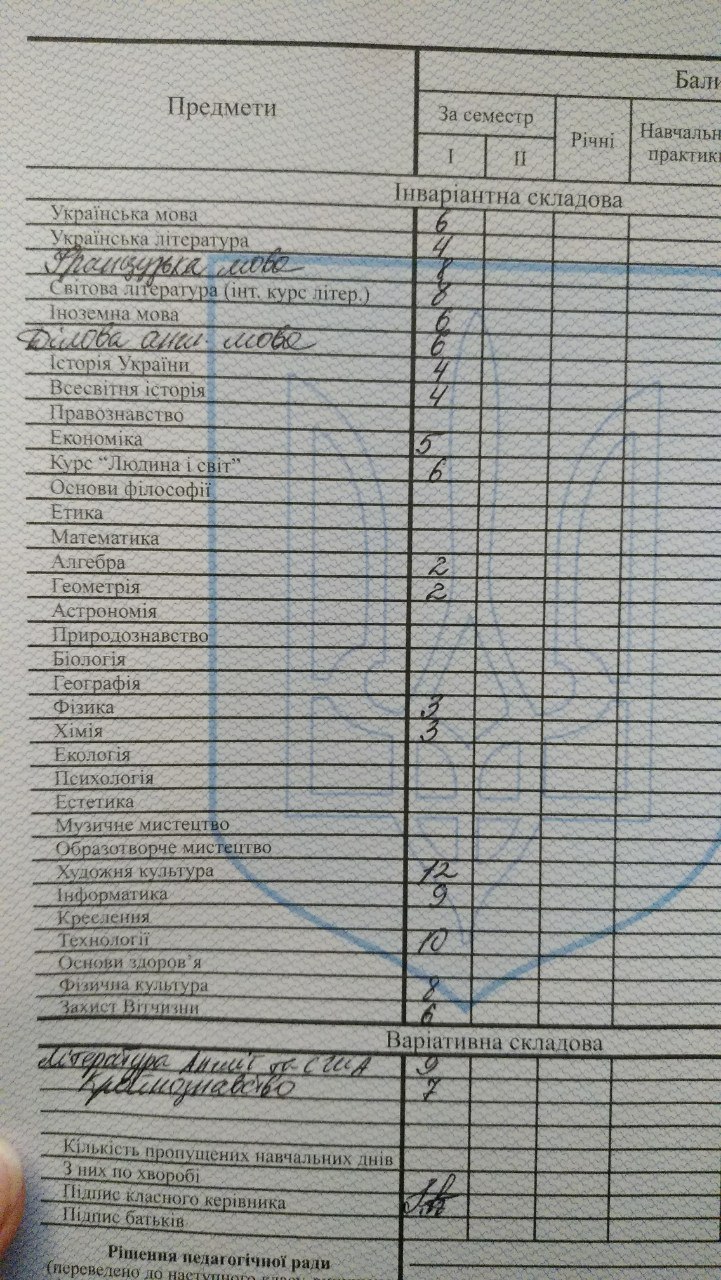 Предмети
Бали
За семестр
Річні
Навчальн
практик
I II
Інваріантна складова
Українська мова 6
Українська література 4
Французька мова 8
Світова література (інт. курс літер.) 8
Іноземна мова 6
Ділова англ. мова 6
Історія України 4
Всесвітня історія 4
Правознавство
Економіка 5
Курс “Людина і світ” 6
Основи філософії
Етика
Математика
Алгебра 2
Геометрія 2
Астрономія
Природознавство
Біологія
Географія
Фізика 3
Хімія 3
Екологія
Психологія
Естетика
Музичне мистецтво
Образотворче мистецтво
Художня культура 12
Інформатика 9
Креслення
Технології 10
Основи здоров’я
Фізична культура 8
Захист Вітчизни 6
Варіативна складова
Література Англії та США 9
Країнознавство 7
Кількість пропущених навчальних днів
З них по хворобі
Підпис класного керівника
Підпис батьків
Рішення педагогічної ради
(переведено до наступного класу,